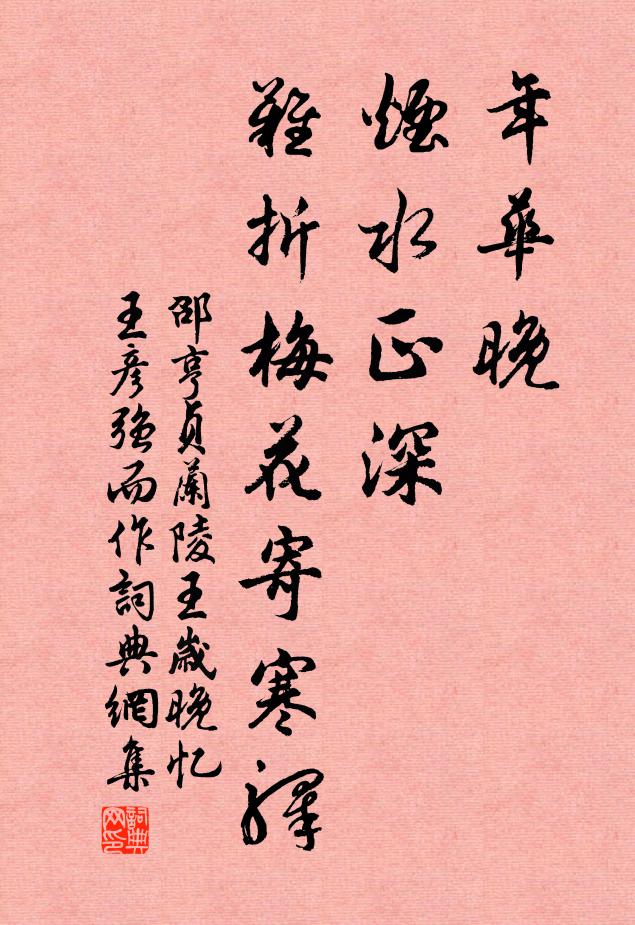 年華晚
煙水正深
難折梅花寄寒驛
邵亨貞蘭陵王歲晚忆
王彦强而作詞典網集
詞典网印